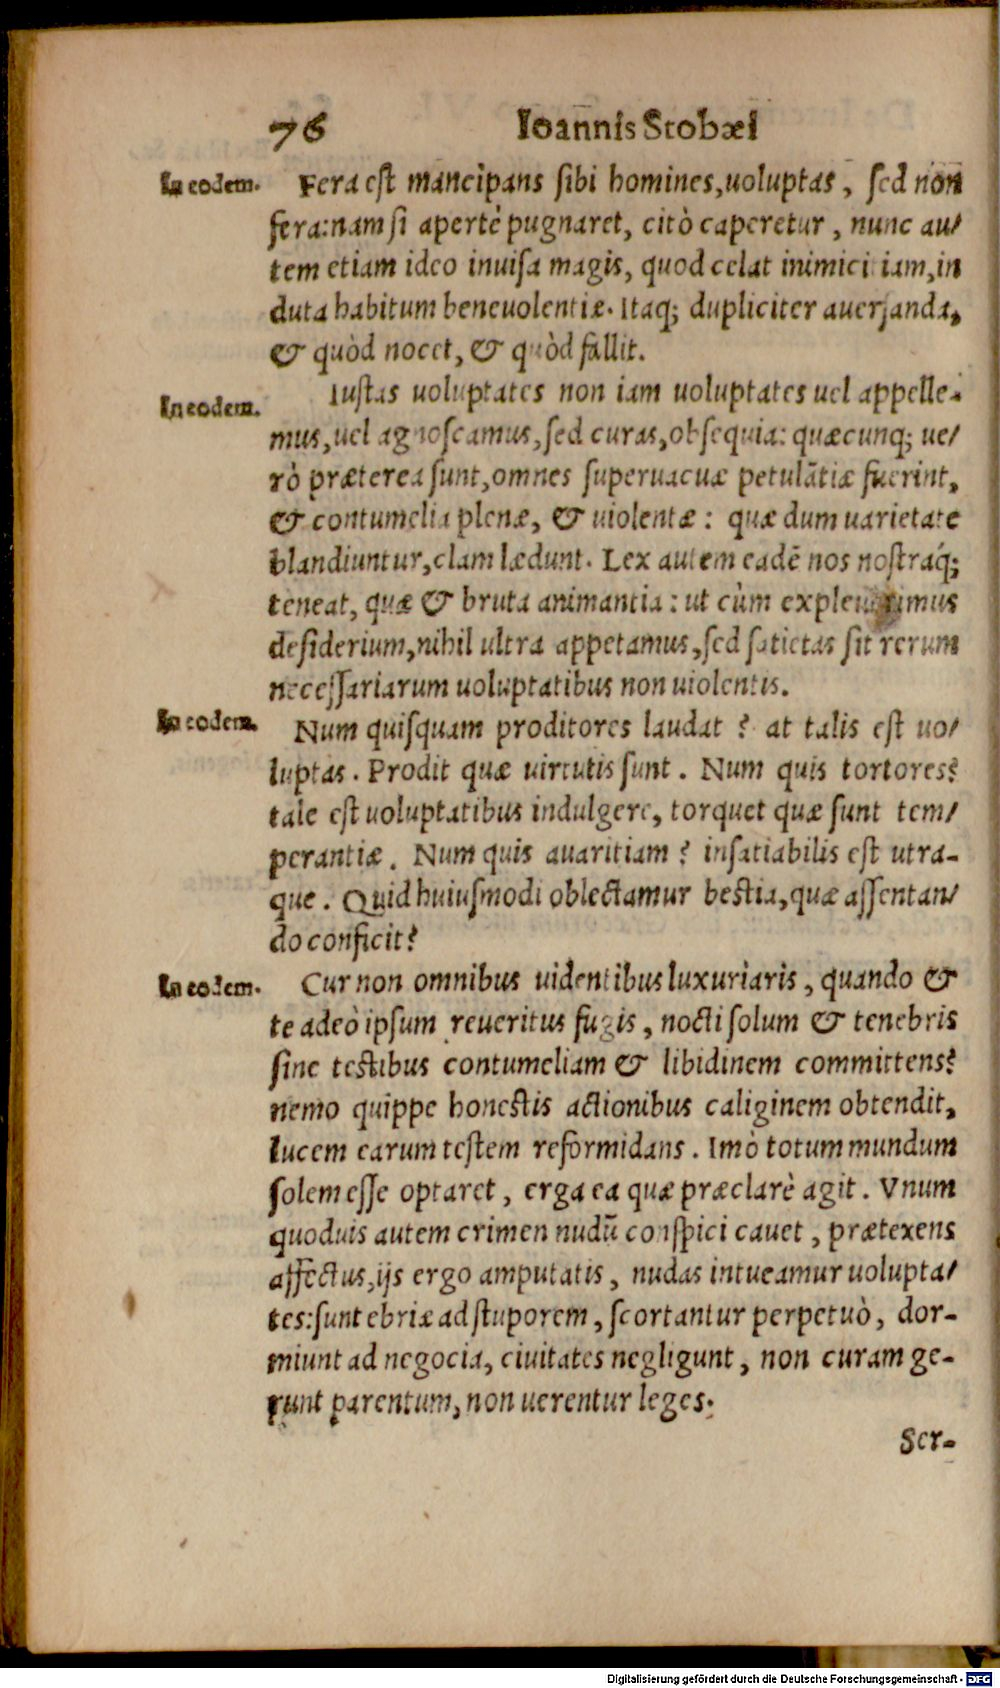 76 Ioannis Stobæi
In eodem. Fera est mancipans sibi homines, uoluptas, sed non
fera: nam si apertè pugnaret, citò caperetur, nunc au/
tem etiam ideo inuisa magis, quod celat inimici iam, in
duta habitum beneuolentiæ. Itaq; dupliciter auersanda,
& quòd nocet, & quòd fallit.
In eodem. Iustas uoluptates non iam uoluptates uel appelle-
mus, uel agnoscamus, sed curas, obsequia: quæcunq; ue/
rò præterea sunt, omnes superuacuæ petulātiæ fuerint,
& contumelia plenæ, & uiolentæ: quæ dum uarietate
blandiuntur, clam lædunt. Lex autem eadē nos nostraq́;
teneat, quæ & bruta animantia: ut cùm expleuerimus
desiderium, nihil ultra appetamus, sed satietas sit rerum
necessariarum uoluptatibus non uiolentis.
In eodem. Num quisquam proditores laudat? at talis est uo/
luptas. Prodit quæ uirtutis sunt. Num quis tortores?
tale est uoluptatibus indulgere, torquet quæ sunt tem/
perantiæ. Num quis auaritiam? insatiabilis est utra-
que. Quid huiusmodi oblectamur bestia, quæ assentan/
do conficit?
In eodem. Cur non omnibus uidentibus luxuriaris, quando &
te adeò ipsum reueritus fugis, nocti solum & tenebris
sine testibus contumeliam & libidinem committens?
nemo quippe honestis actionibus caliginem obtendit,
lucem earum testem reformidans. Imò totum mundum
solem esse optaret, erga ea quæ præclarè agit. Vnum
quoduis autem crimen nudū conspici cauet, prætexens
affectus, ijs ergo amputatis, nudas intueamur uolupta/
tes: sunt ebriæ ad stuporem, scortantur perpetuò, dor-
miunt ad negocia, ciuitates negligunt, non curam ge-
runt parentum, non uerentur leges.
Ser-
Digitalisierung gefördert durch die Deutsche Forschungsgemeinschaft - DFG